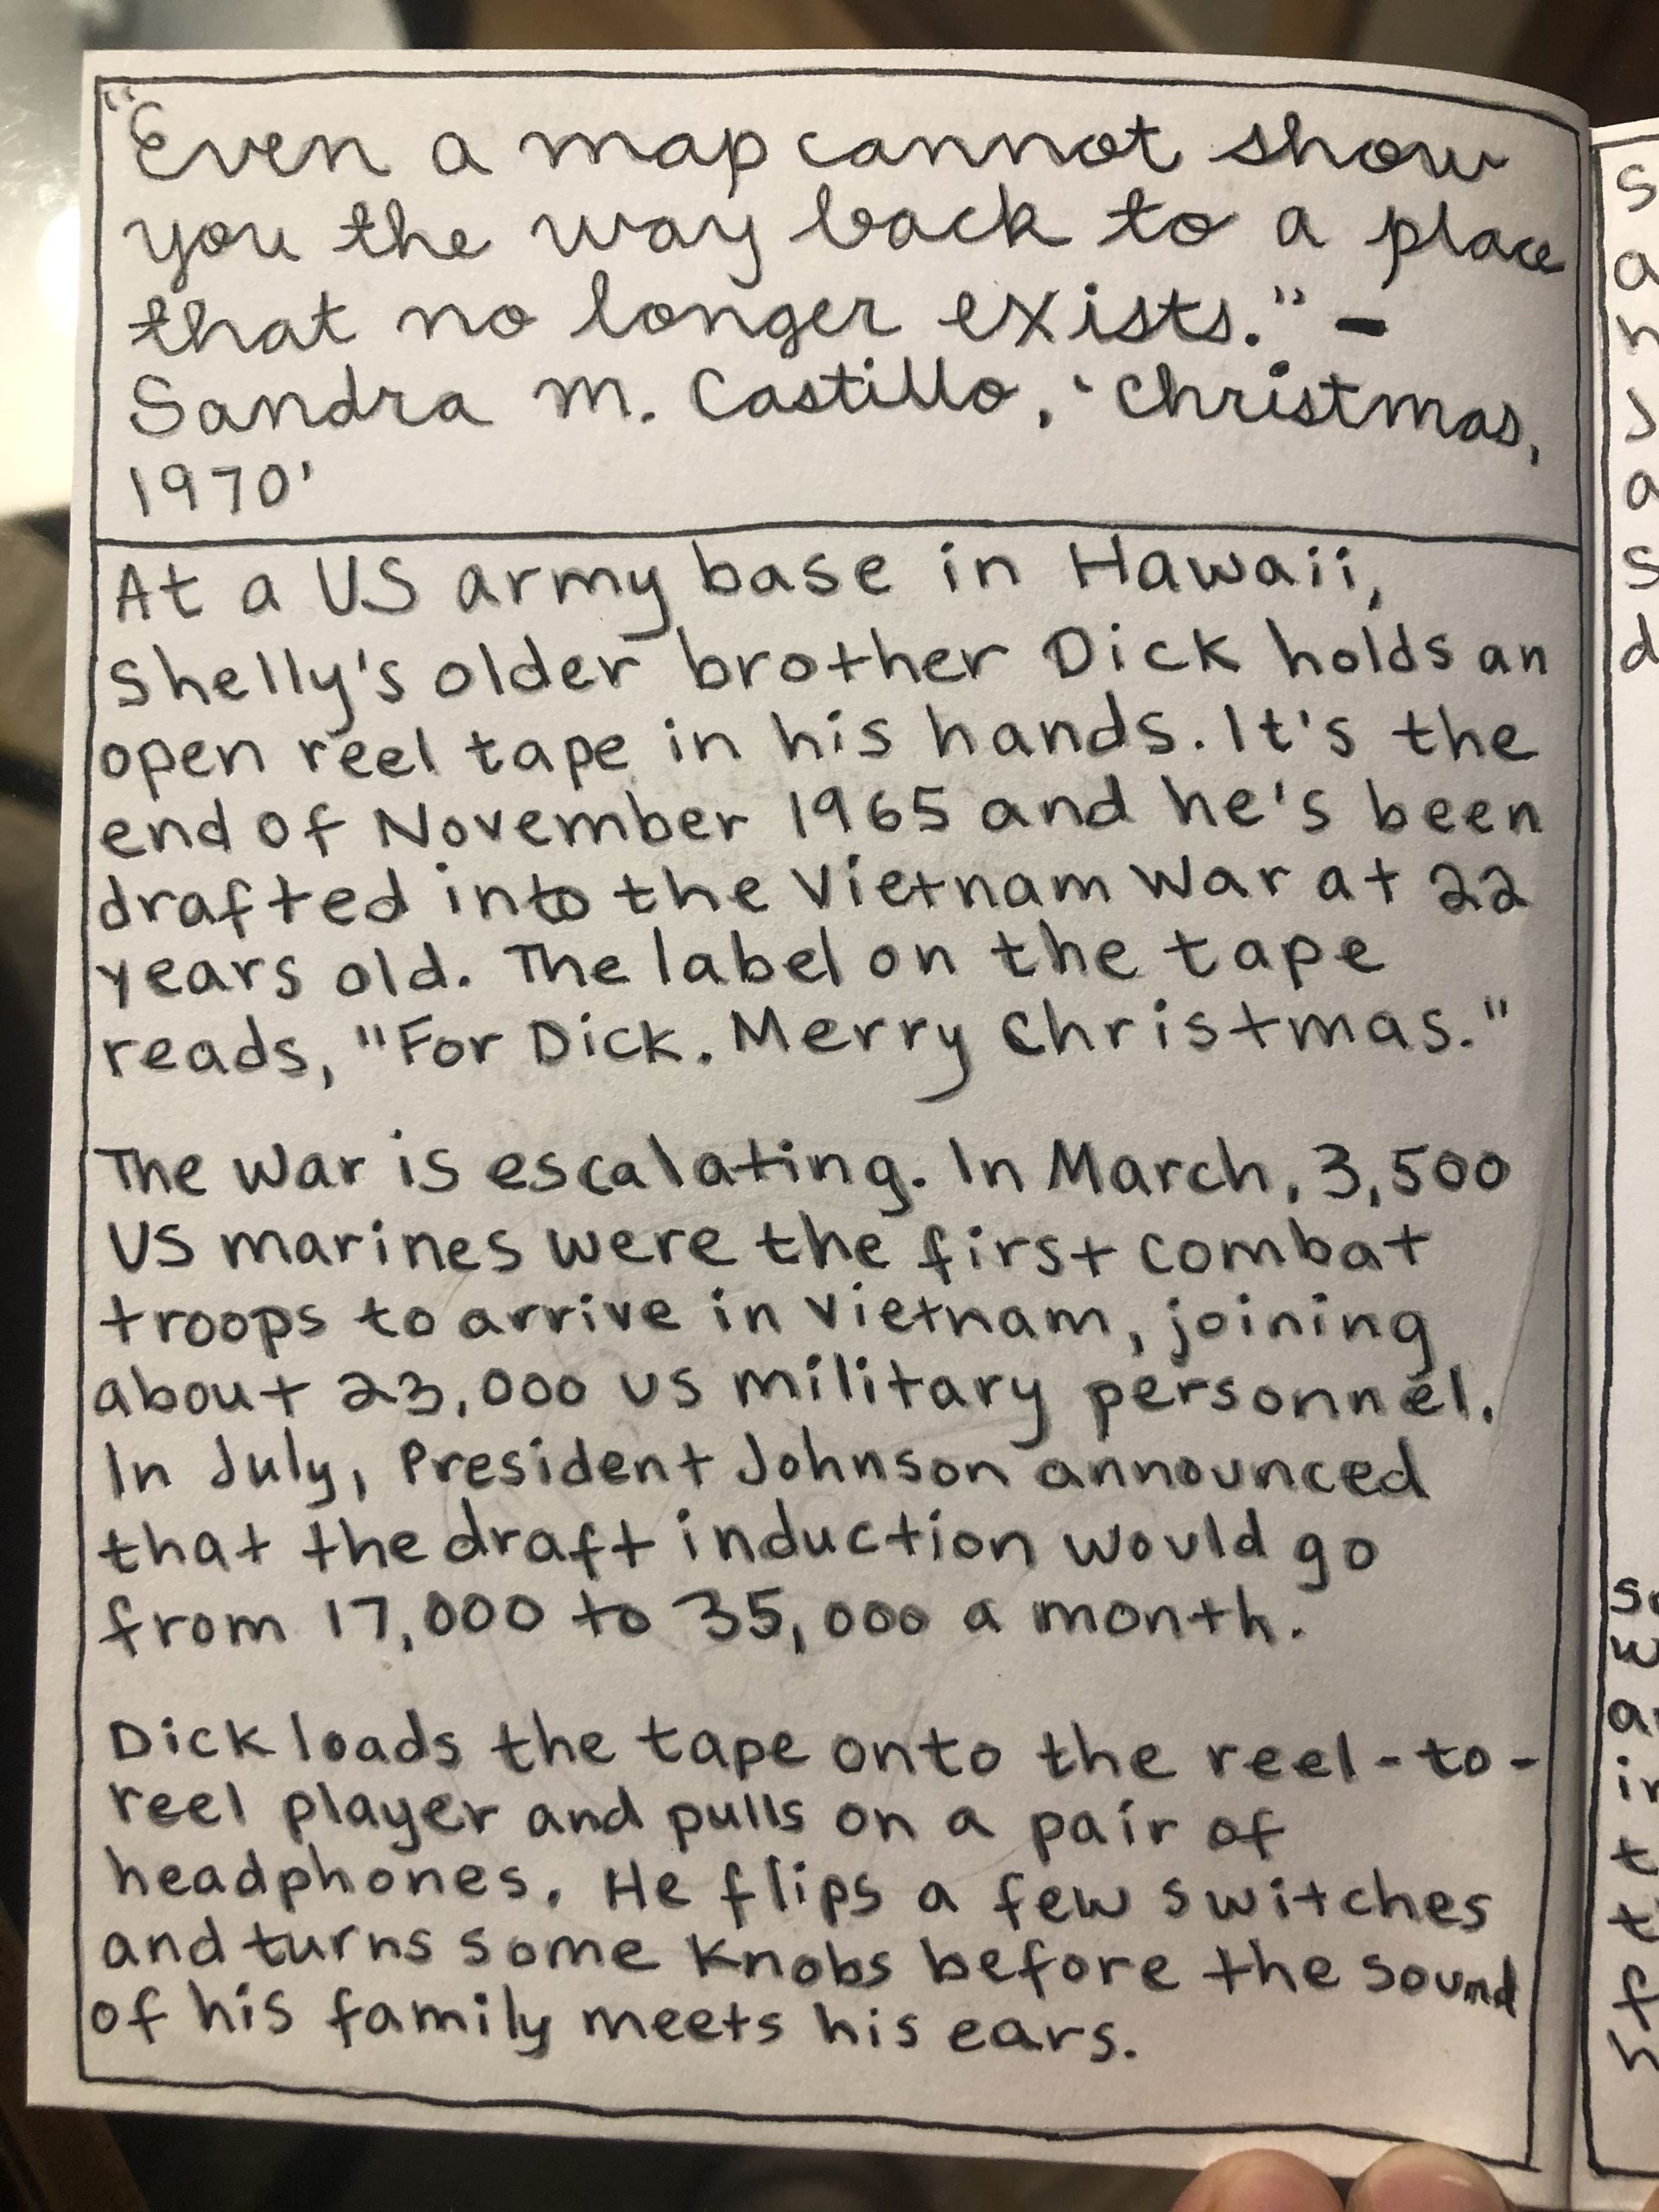 "Even a map cannot show
you the way back to a place
that no longer exists." -
Sandra M. Castillo, 'Christmas,
1970'
At a US army base in Hawaii,
Shelly's older brother Dick holds an
open reel tape in his hands. It's the
end of November 1965 and he's been
drafted into the Vietnam War at 22
years old. The label on the tape
reads, "For Dick. Merry Christmas."
The war is escalating. In March, 3,500
US marines were the first combat
troops to arrive in Vietnam, joining
about 23,000 US military personnel.
In July, President Johnson announced
that the draft induction would go
from 17,000 to 35,000 a month.
Dick loads the tape onto the reel-to-
reel player and pulls on a pair of
headphones. He flips a few switches
and turns some knobs before the sound
of his family meets his ears.